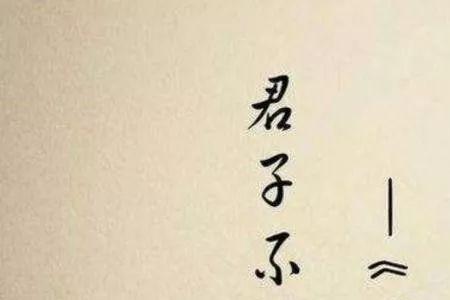 君子不
—《